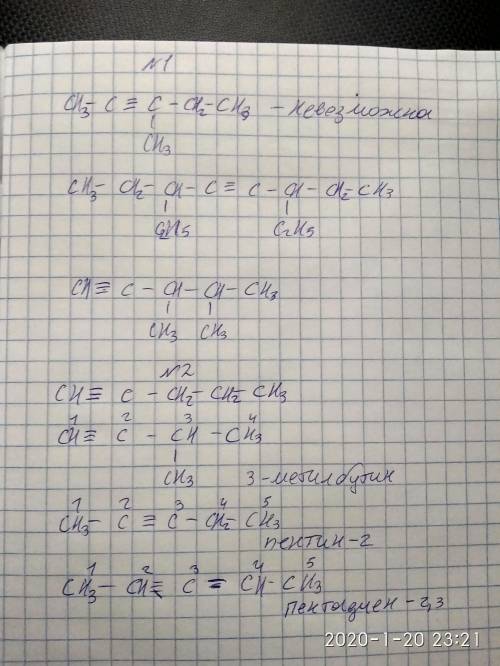 №1
CH₃ - C ≡ C - CH₂ - CH₃ - невезможна
CH₃
CH₃ - CH₂ - CH - C ≡ C - CH - CH₂ - CH₃
C₂H₅ C₂H₅
CH ≡ C - CH - CH - CH₃
CH₃ CH₃
№2
CH ≡ C - CH₂ - CH₂ - CH₃
1 2 3 4
CH ≡ C - CH - CH₃
CH₃ 3-метилбутин
1 2 3 4 5
CH₃ - C ≡ C - CH₂ - CH₃
пентин-2
1 2 3 4 5
CH₃ - CH = C = CH - CH₃
пентадиен-2,3
2020-1-20 23:21